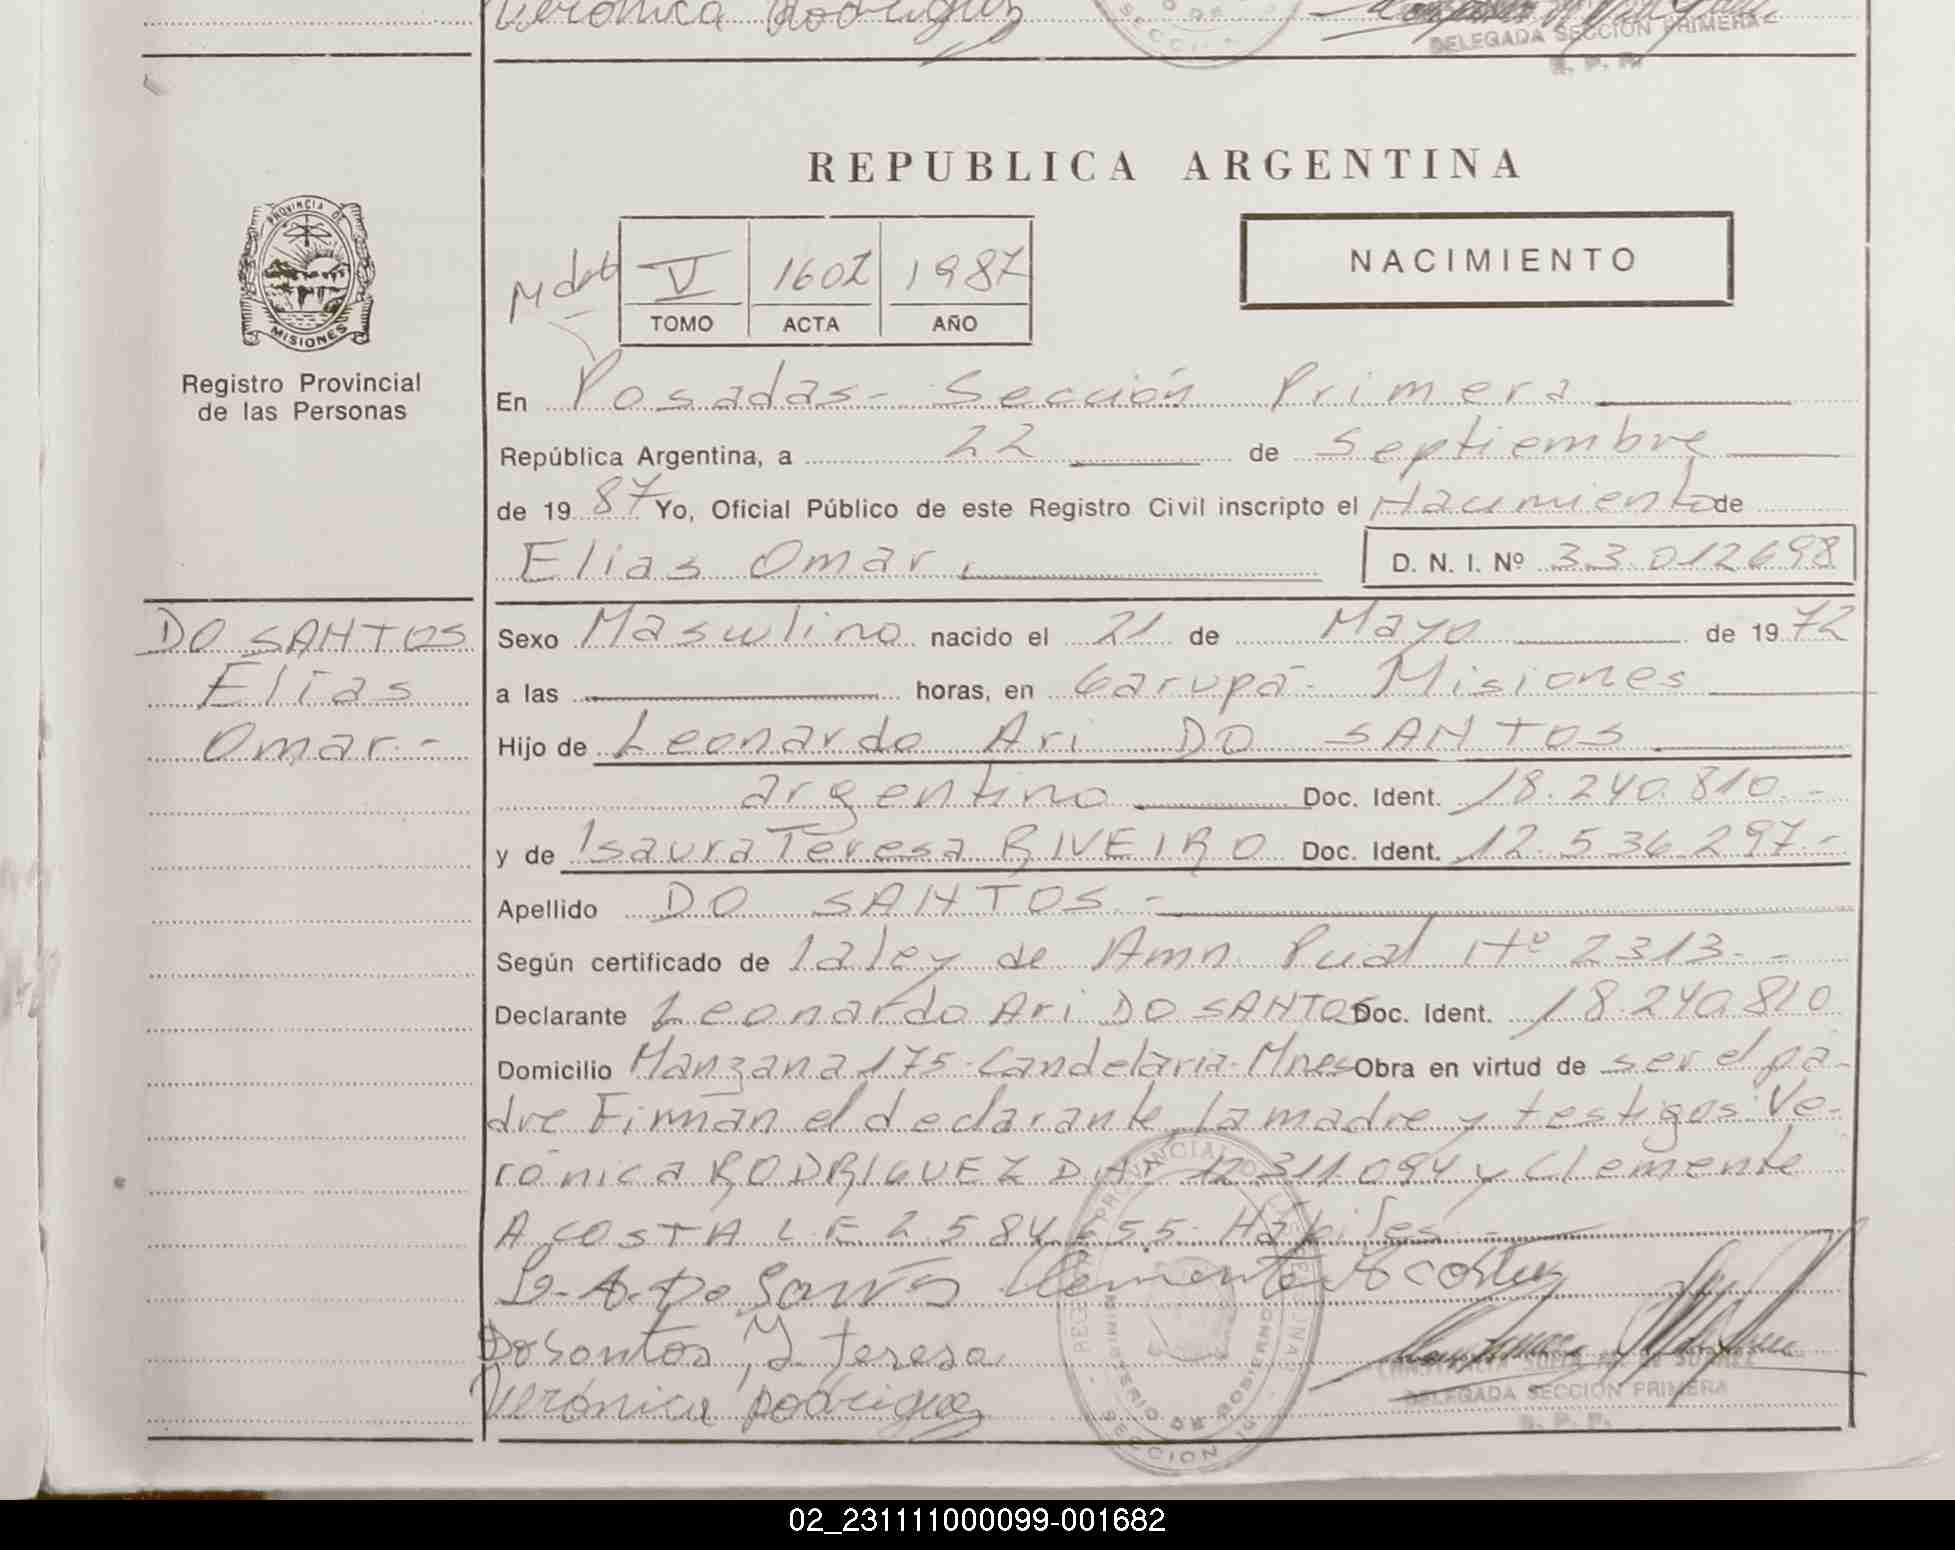 Verónica Rodríguez
DELEGADA SECCIÓN PRIMERA
R. P. P.
REPUBLICA ARGENTINA
PROVINCIA DE
MISIONES
Registro Provincial
de las Personas
V 1602 1987
TOMO ACTA AÑO
NACIMIENTO
En Posadas - Sección Primera
República Argentina, a 22 de Septiembre
de 19 87 Yo, Oficial Público de este Registro Civil inscripto el Nacimiento de
Elias Omar. D. N. I. Nº 33.012698
DO SANTOS
Elías
Omar.-
Sexo Masculino nacido el 21 de Mayo de 19 72
a las horas, en Garupá - Misiones
Hijo de Leonardo Ari DO SANTOS
argentino Doc. Ident. 18.240.810.-
y de Isaura Teresa RIVEIRO Doc. Ident. 12.536.297.-
Apellido DO SANTOS.-
Según certificado de la ley de Amn. Pcial Nº 2313.-
Declarante Leonardo Ari DO SANTOS Doc. Ident. 18.240.810
Domicilio Manzana 175 - Candelaria - Mnes Obra en virtud de ser el pa-
dre Firman el declarante, la madre y testigos: Ve-
rónica RODRIGUEZ 12.311.094 y Clemente
ACOSTA L.E 2.584.655. Hábiles.-
L. A. Do Santos Clemente Acosta
Do Santos, I. Teresa
Verónica Rodríguez
DELEGADA SECCIÓN PRIMERA
R. P. P.
02_231111000099-001682